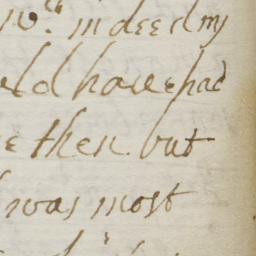 w.ch indeed my
ld have had
e then but
was most